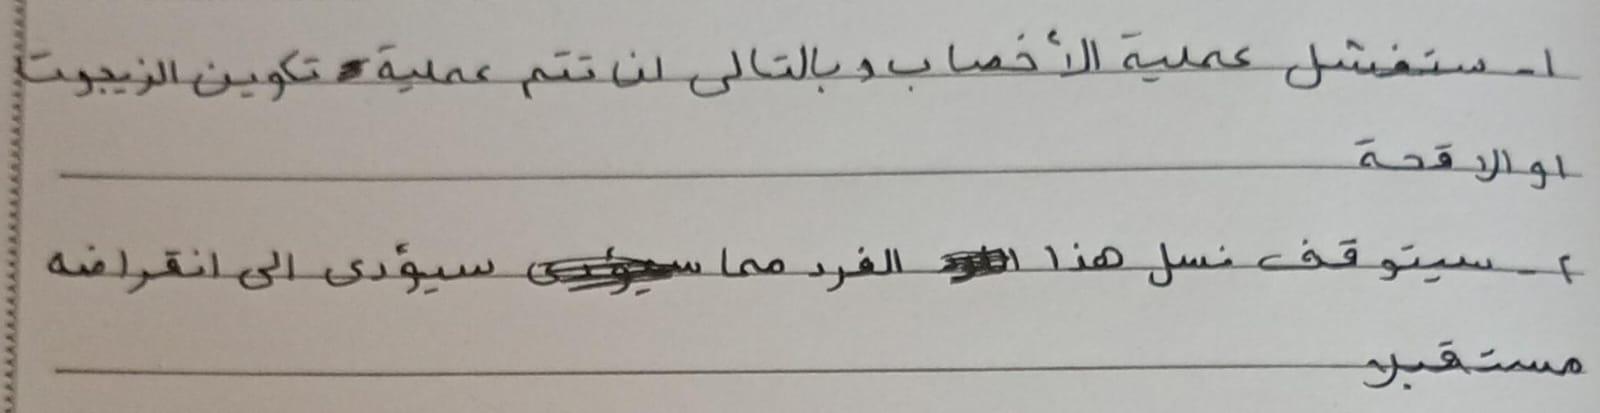 ١- ستفشل عملية الأخصاب وبالتالى لن تتم عملية تكوين الزيجوت
او الاقحة
٢- سيتوقف نسل هذا الفرد مما سيؤدى الى انقراضه
مستقبلا